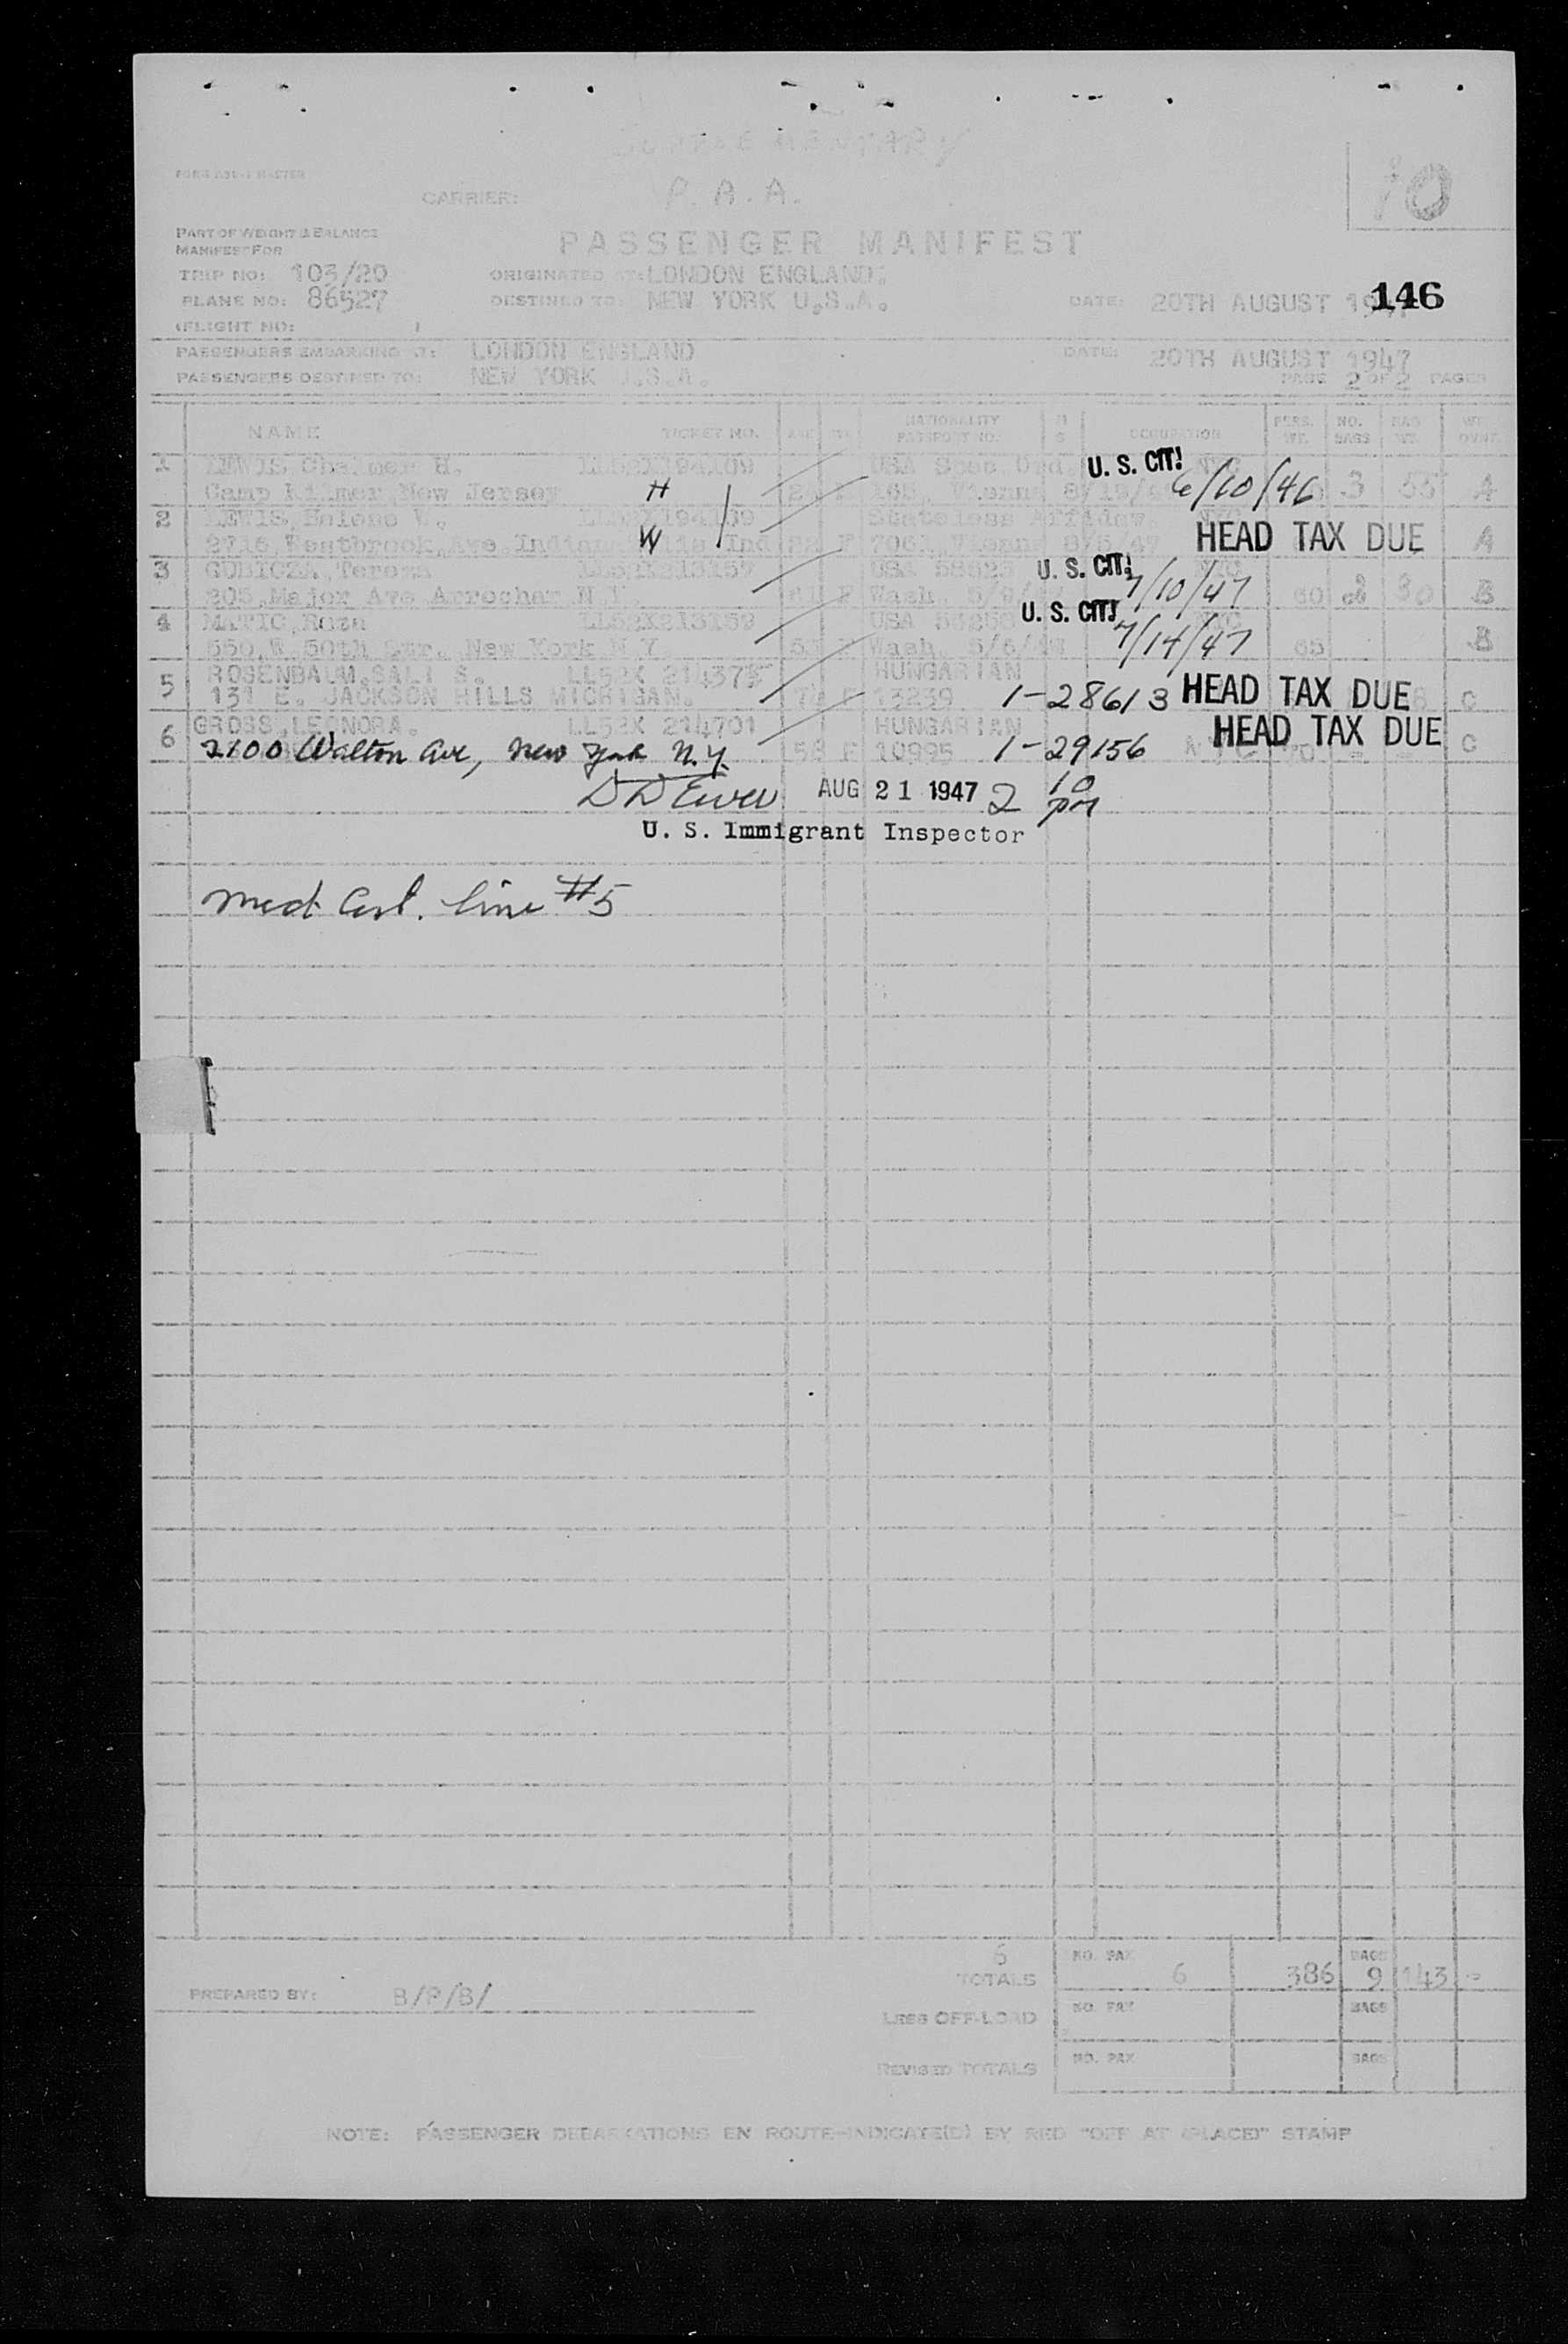 CARRIER: P. A. A.
10
PART OF WEIGHT & BALANCE
MANIFEST FOR
PASSENGER MANIFEST
TRIP NO: 103/20 ORIGINATED AT: LONDON ENGLAND.
PLANE NO: 86527 DESTINED TO: NEW YORK U.S.A. DATE: 20TH AUGUST
146
(FLIGHT NO: )
PASSENGERS EMBARKING AT: LONDON ENGLAND DATE: 20TH AUGUST 1947
PASSENGERS DESTINED TO: NEW YORK U.S.A. PAGE 2 OF 2 PAGES
NAME TICKET NO. AGE NATIONALITY PASSPORT NO. OCCUPATION PERS. WT. NO. BAGS BAG WT.
1 LEWIS, Chalmer H. LL52X194109 USA U. S. CIT!
Camp Kilmer New Jersey H Vienna 6/10/46 3 55 A
2 LEWIS, Helene V. Stateless HEAD TAX DUE
2716 Westbrook Ave W F 7061 Vienna A
3 GUBICZA Teresa LL52X213157 USA 58623 U. S. CIT!
205 Major Ave Arrochar N.Y. F Wash. 7/10/47 60 B
4 MATIC Roza LL52X213159 USA U. S. CIT!
550 W 50th Str. New York N.Y. Wash. 5/6/47 7/14/47 65 B
5 ROSENBAUM, SALI S. LL52X 214375 HUNGARIAN
131 E. JACKSON HILLS MICHIGAN. F 13239 1-28613 HEAD TAX DUE C
6 GROSS, LEONORA. LL52X 214701 HUNGARIAN HEAD TAX DUE
2100 Walton Ave, New York N.Y. 58 F 10995 1-29156 70 C
AUG 21 1947 2 10 pm
U. S. Immigrant Inspector
Med Cert. line #5
6 NO. PAX BAGS
TOTALS 6 386 9 143
PREPARED BY: B/P/B/
LESS OFF-LOAD NO. PAX BAGS
REVISED TOTALS NO. PAX BAGS
NOTE: PASSENGER DEBARKATIONS EN ROUTE-INDICATE(D) BY RED "OFF AT (PLACE)" STAMP